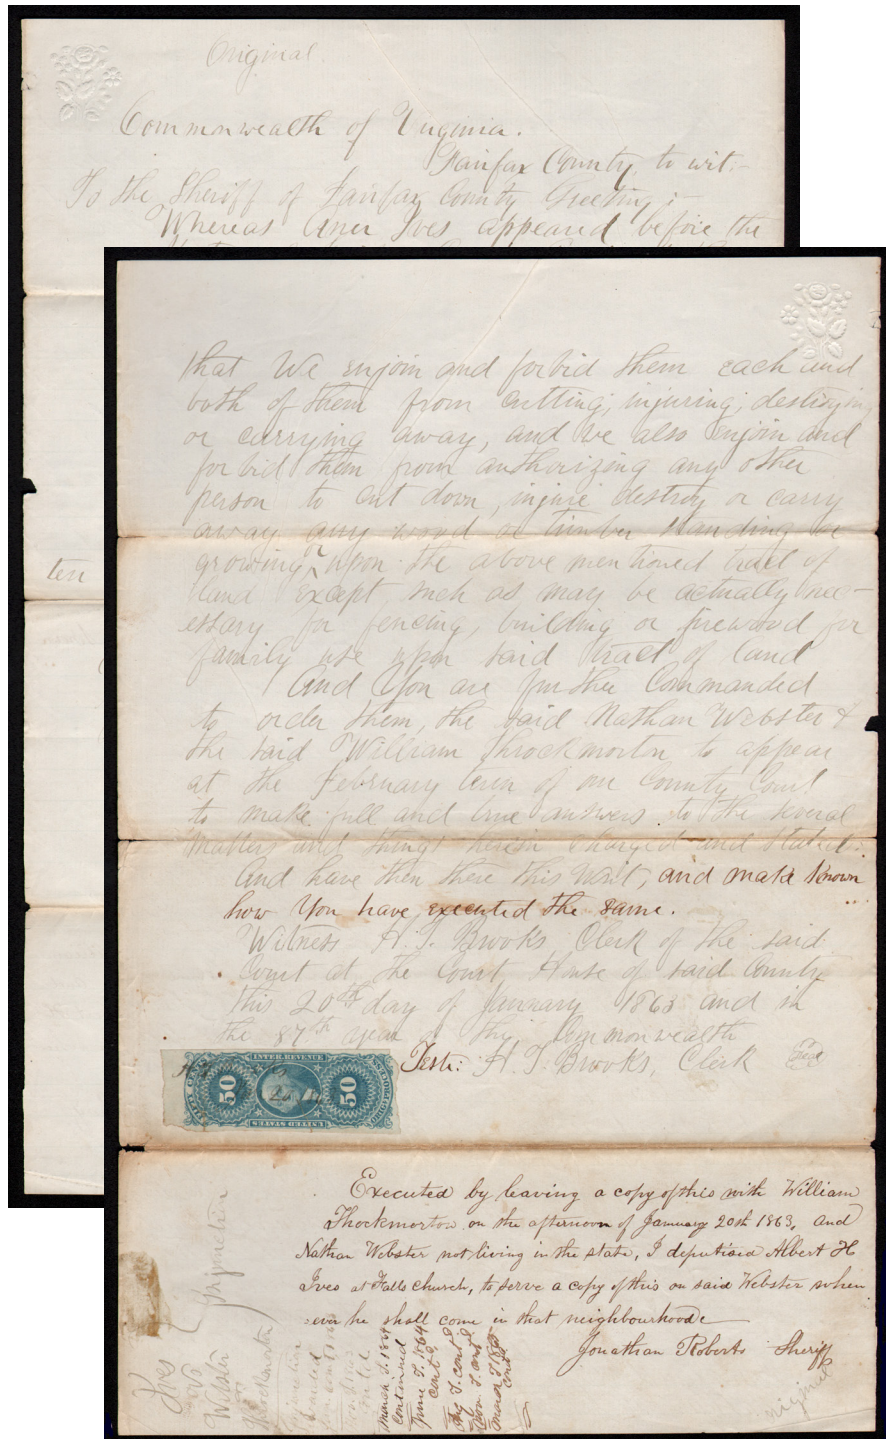 Original.
Commonwealth of Virginia.
Fairfax County, to wit:-
To the Sheriff of Fairfax County Greeting:-
Whereas Aner Ives appeared before the
ten
that We enjoin and forbid them each and
both of them from cutting, injuring, destroying
or carrying away, and we also enjoin and
forbid them from authorizing any other
person to cut down, injure destroy or carry
away any wood or timber standing or
growing upon the above mentioned tract of
land except such as may be actually nec-
essary for fencing, building or firewood for
family use upon said tract of land
And You are further Commanded
to order them, the said Nathan Webster &
the said William Throckmorton, to appear
at the February term of our County Court
to make full and true answers to the several
matters and things herein charged and stated.
And have then there this Writ, and make known
how You have executed the same.
Witness H. T. Brooks Clerk of the said
Court at the Court House of said County
this 20th day of January 1863 and in
the 87th year of the Commonwealth
Teste: H. T. Brooks, Clerk
Seal
INTER. REVENUE
50
50
UNITED STATES
Executed by leaving a copy of this with William
Thockmorton on the afternoon of January 20th 1863, and
Nathan Webster not living in the state, I deputised Albert H
Ives at Falls Church, to serve a copy of this on said Webster when
ever he shall come in that neighbourhoode
Jonathan Roberts Sheriff
Ives
vs
Webster
Throckmorton
Injunction
March T. 1864
Continued
June T. 1864
Cont'd
Aug T. cont'd
Nov. T. cont'd
March T 1865
Cont'd
Original